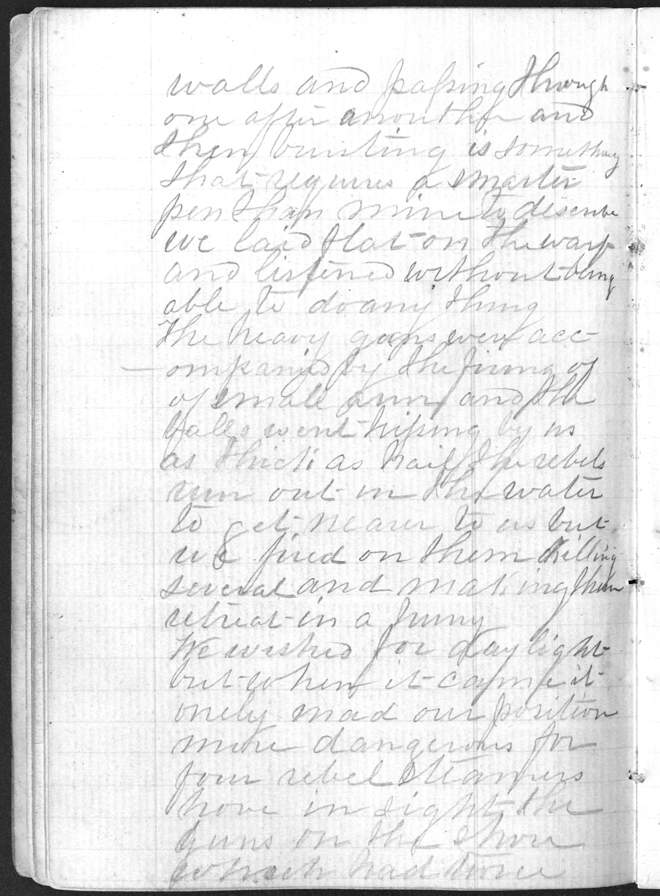 walls and passing through
one after another and
then bursting is something
that requires a smarter
pen than mine to describe
we laid flat on the
and listened without being
able to do any thing
The heavy guns were acc-
ompanied by the firing of
of small arms and the
balls went hissing by us
as thick as hail the rebels
run out in the water
to get nearer to us but
we fired on them killing
several and making them
retreat in a hurry
We wished for daylight
but when it came it
onely mad our position
more dangerous for
four rebel steamers
hove in sight the
guns on the shore
which had